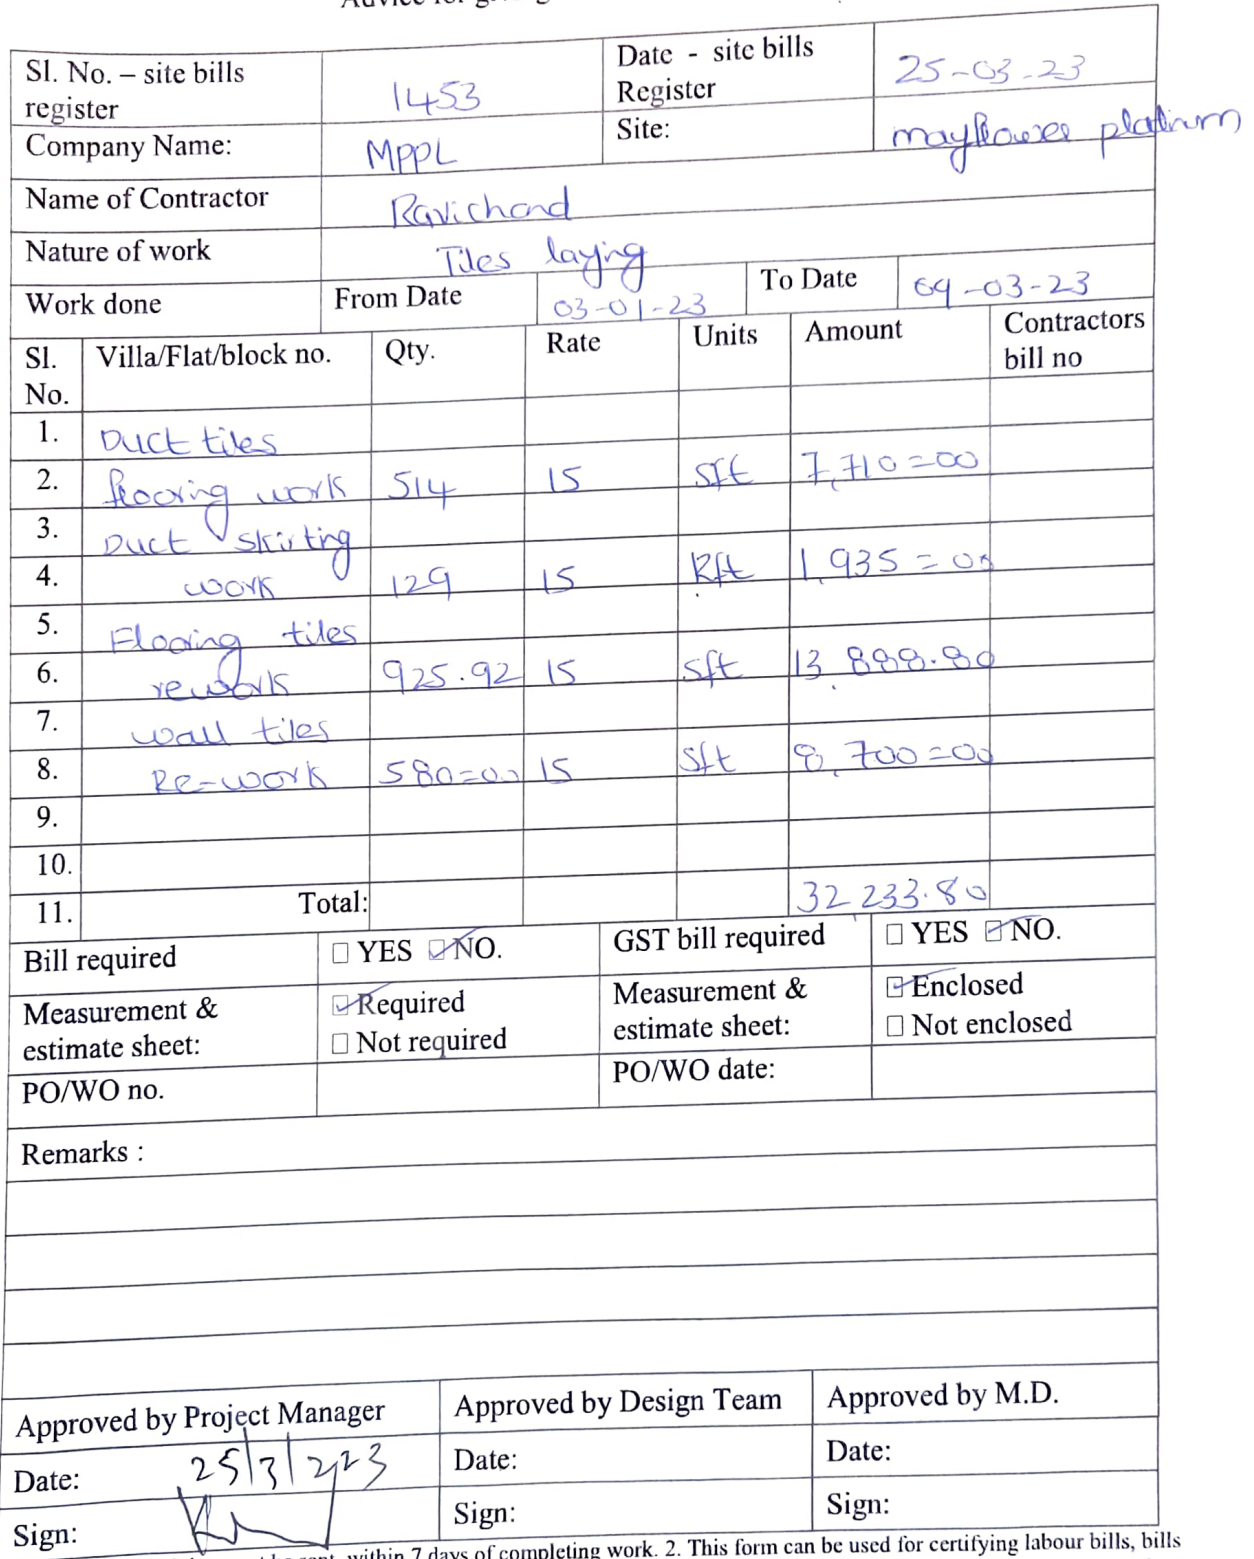 Advice for
Sl. No. – site bills register 1453 Date - site bills Register 25-03-23
Company Name: MPPL Site: mayflower platinum
Name of Contractor Ravichand
Nature of work Tiles laying
Work done From Date 03-01-23 To Date 09-03-23
Sl. No. Villa/Flat/block no. Qty. Rate Units Amount Contractors bill no
1. Duct tiles
2. flooring work 514 15 sft 7,710=00
3. Duct skirting
4. work 129 15 Rft 1,935=00
5. Flooring tiles
6. rework 925.92 15 sft 13,888.80
7. wall tiles
8. Re-work 580=00 15 sft 8,700=00
9.
10.
11. Total: 32,233.80
Bill required □ YES ☑ NO. GST bill required □ YES ☑ NO.
Measurement & estimate sheet: ☑ Required □ Not required Measurement & estimate sheet: ☑ Enclosed □ Not enclosed
PO/WO no. PO/WO date:
Remarks :
Approved by Project Manager Approved by Design Team Approved by M.D.
Date: 25/3/2023 Date: Date:
Sign: Sign: Sign:
within 7 days of completing work. 2. This form can be used for certifying labour bills, bills